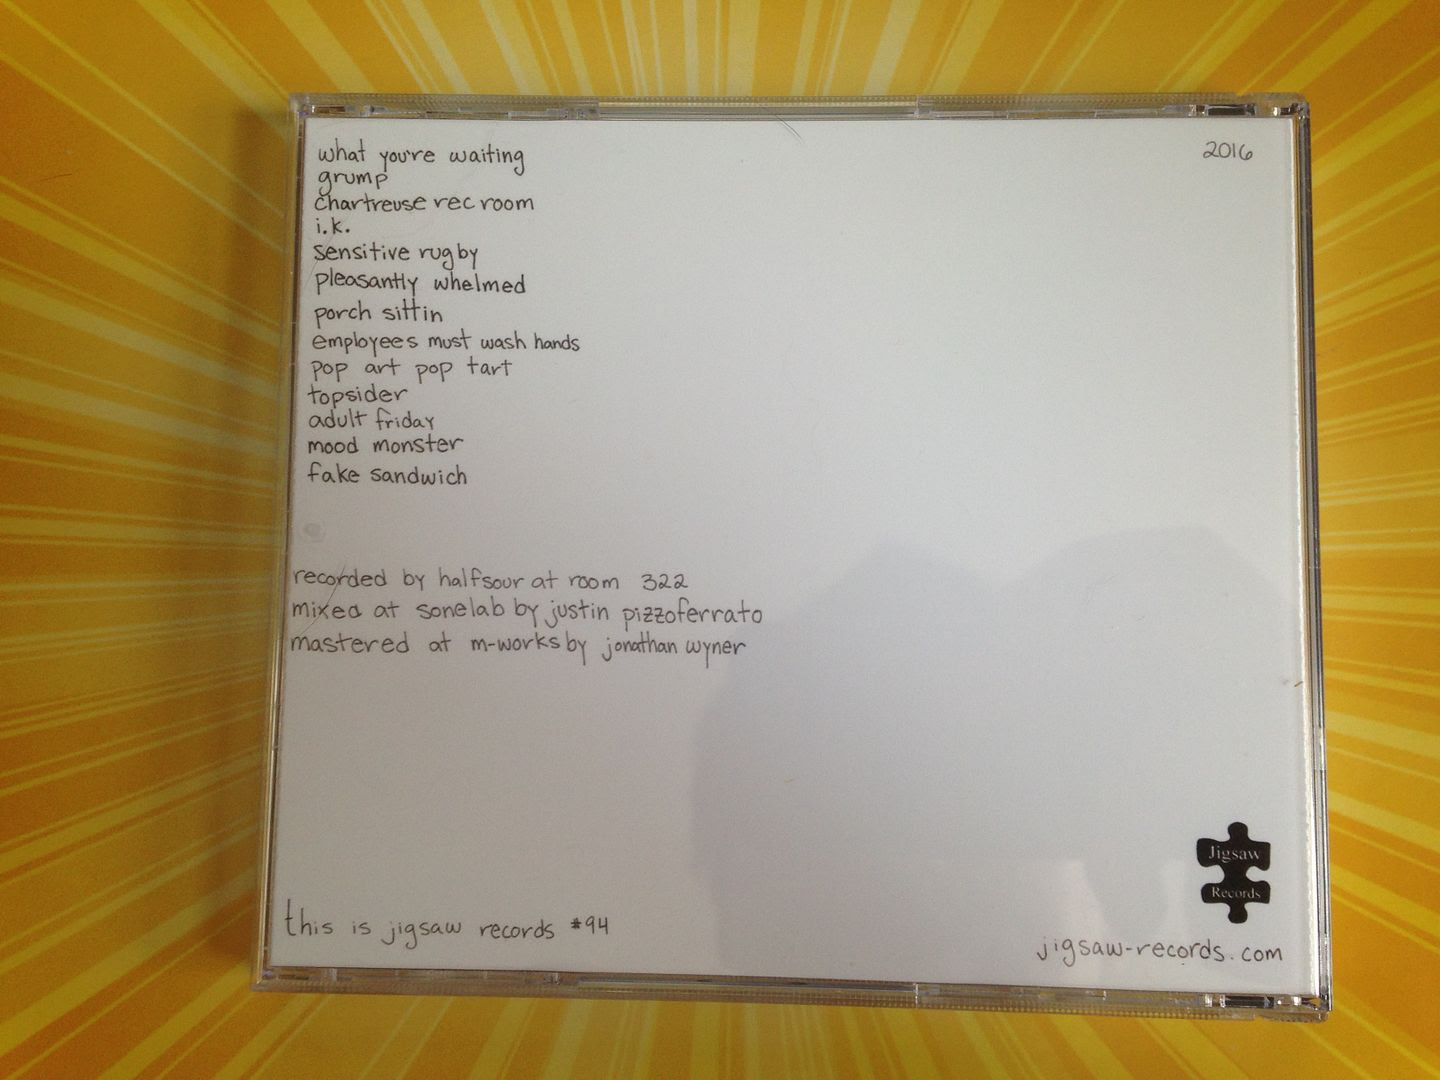 what you're waiting
grump
chartreuse rec room
i.k.
sensitive rugby
pleasantly whelmed
porch sittin
employees must wash hands
pop art pop tart
topsider
adult friday
mood monster
fake sandwich
2016
recorded by halfsour at room 322
mixed at sonelab by justin pizzoferrato
mastered at m-works by jonathan wyner
this is jigsaw records #94
Jigsaw
Records
jigsaw-records.com